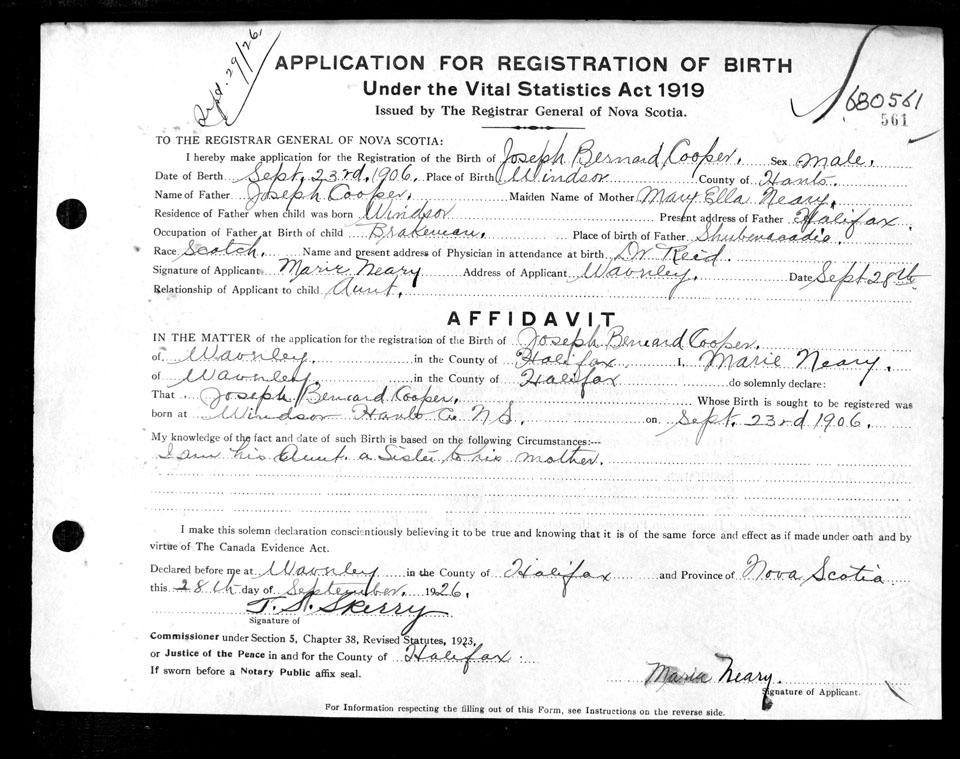 Sept. 29/26.
APPLICATION FOR REGISTRATION OF BIRTH
Under the Vital Statistics Act 1919
Issued by The Registrar General of Nova Scotia.
680561
561
TO THE REGISTRAR GENERAL OF NOVA SCOTIA:
I hereby make application for the Registration of the Birth of Joseph Bernard Cooper. Sex Male.
Date of Birth Sept. 23rd. 1906. Place of Birth Windsor County of Hants.
Name of Father Joseph Cooper. Maiden Name of Mother Mary Ella Neary.
Residence of Father when child was born Windsor Present address of Father Halifax.
Occupation of Father at Birth of child Brakeman. Place of birth of Father Shubenacadie.
Race Scotch. Name and present address of Physician in attendance at birth Dr Reid.
Signature of Applicant Marie Neary Address of Applicant Waverley. Date Sept 28th
Relationship of Applicant to child Aunt.
AFFIDAVIT
IN THE MATTER of the application for the registration of the Birth of Joseph Bernard Cooper.
of Waverley. in the County of Halifax I, Marie Neary.
of Waverley. in the County of Halifax do solemnly declare:
That Joseph Bernard Cooper. Whose Birth is sought to be registered was
born at Windsor Hants Co. N S. on Sept. 23rd 1906.
My knowledge of the fact and date of such Birth is based on the following Circumstances:---
I am his Aunt. a Sister to his mother.
I make this solemn declaration conscientiously believing it to be true and knowing that it is of the same force and effect as if made under oath and by
virtue of The Canada Evidence Act.
Declared before me at Waverley in the County of Halifax and Province of Nova Scotia
this 28th day of September. 1926.
T. S. Skerry
Signature of
Commissioner under Section 5, Chapter 38, Revised Statutes, 1923,
or Justice of the Peace in and for the County of Halifax.
If sworn before a Notary Public affix seal.
Maria Neary.
Signature of Applicant.
For Information respecting the filling out of this Form, see Instructions on the reverse side.